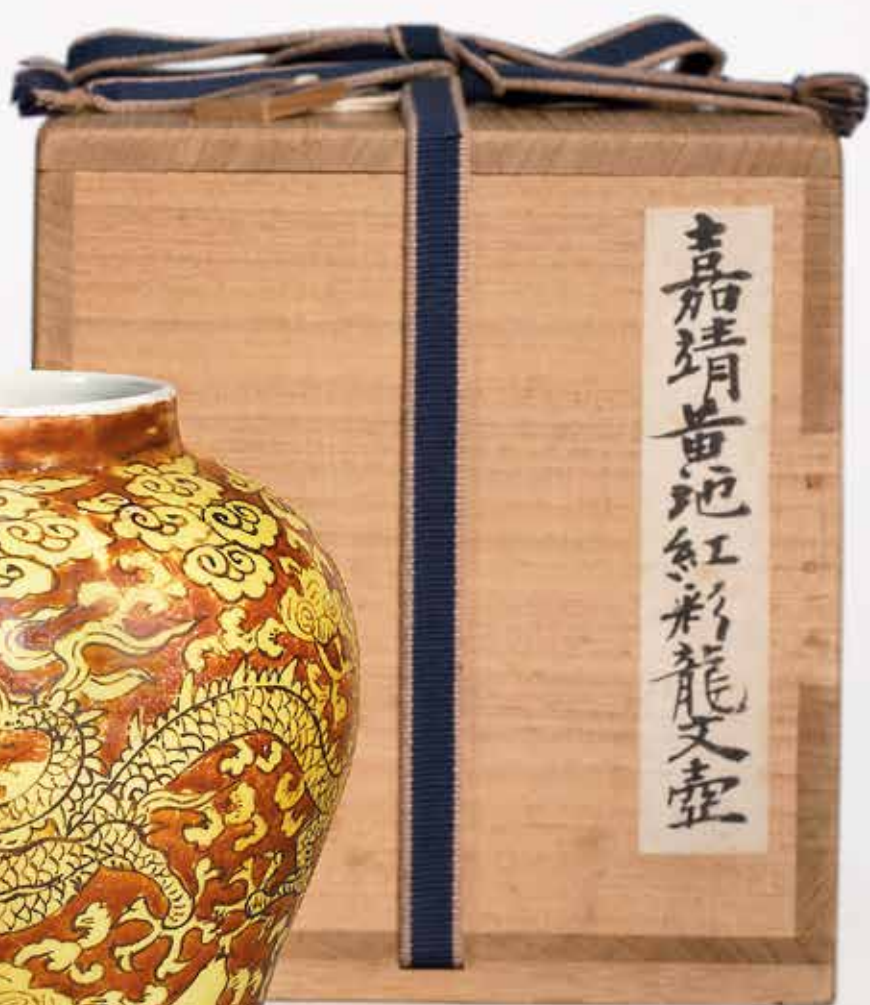 嘉靖黄地紅彩龍文壺